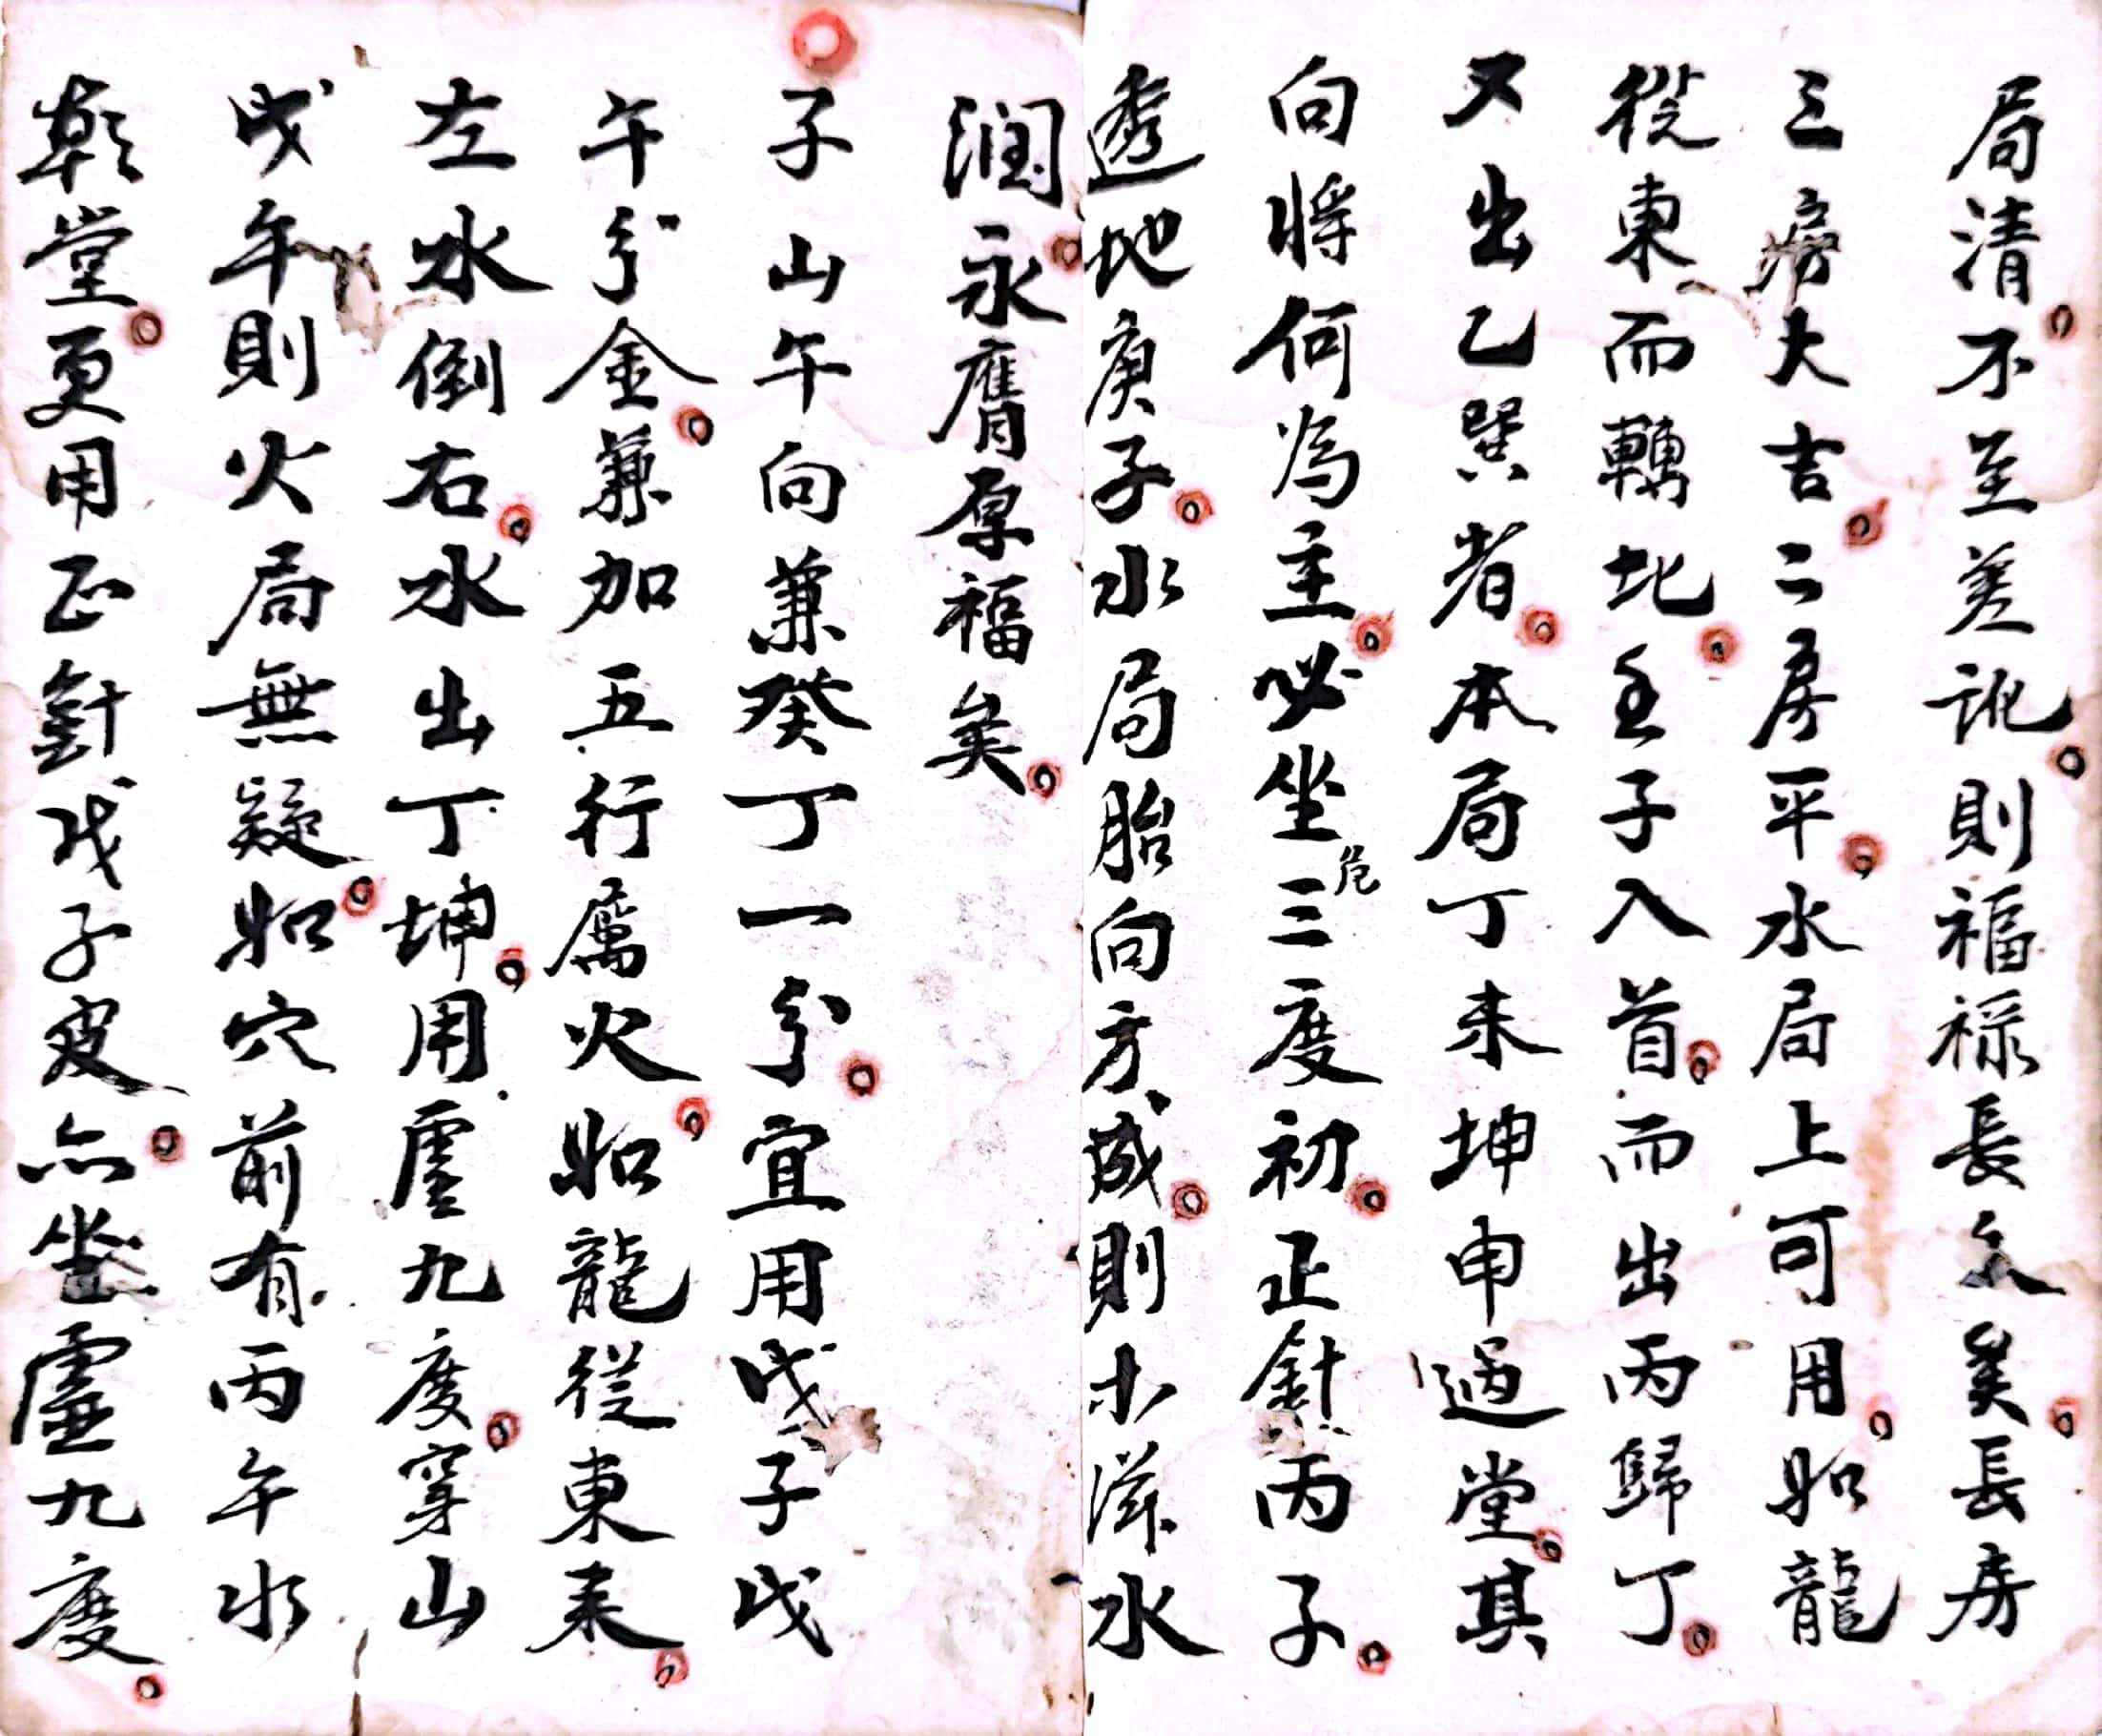 局清不至差訛則福祿長久矣長房
三房大吉二房平水局上可用如龍
從東而轉北壬子入首而出丙歸丁
又出乙巽者本局丁未坤申過堂其
向將何為主必坐危三度初正針丙子
透地庚子水局胎向方成則木滋水
潤永膺厚福矣
子山午向兼癸丁一分宜用戊子戊
午分金兼加五行屬火如龍從東來
左水倒右水出丁坤用虛九度穿山
戊午則火局無疑如穴前有丙午水
朝堂更用正針戊子更亦坐虛九度